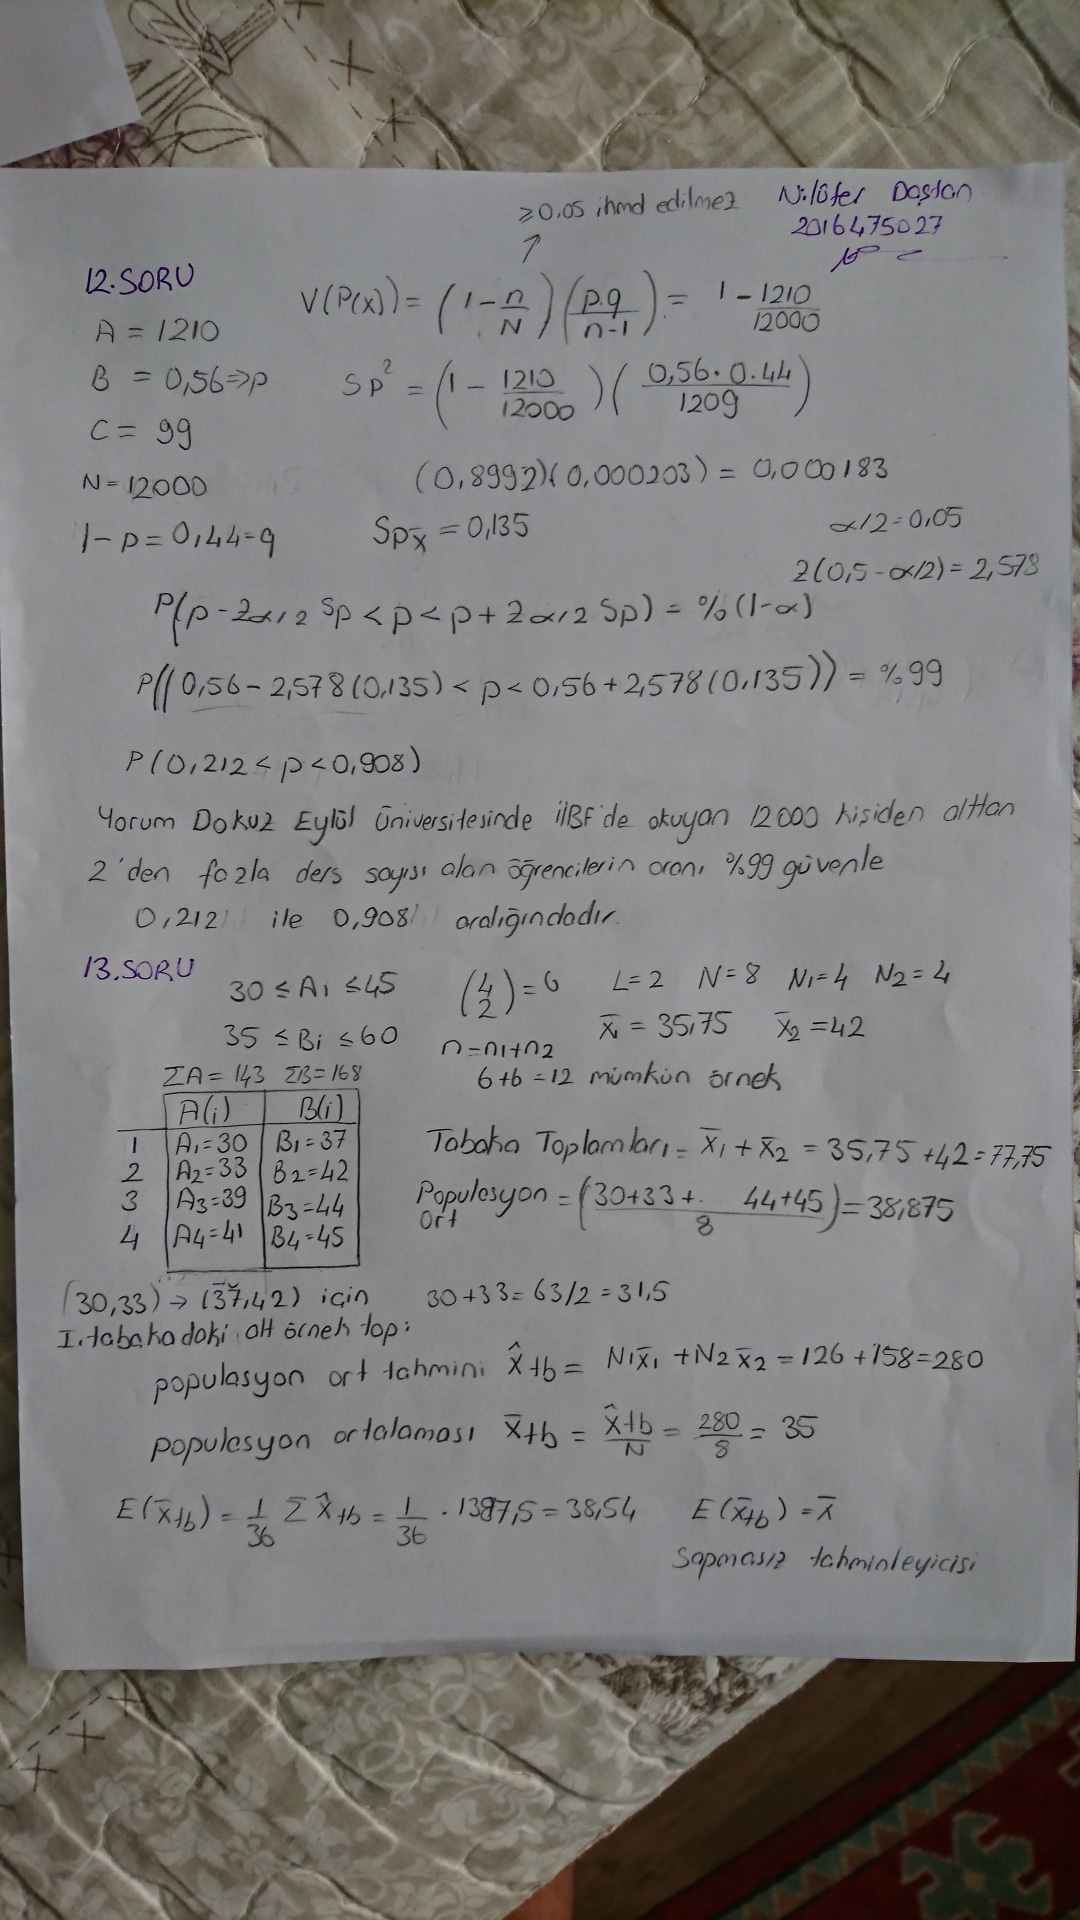 ≥0,05 ihmal edilmez
Nilüfer Daştan
2016475027
12.SORU
V(P(x)) = (1 - n/N) (p.q/n-1) = 1 - 1210/12000
A = 1210
B = 0,56 => p
Sp² = (1 - 1210/12000) (0,56 . 0.44/1209)
C = 99
N = 12000
(0,8992)(0,000203) = 0,000183
1-p = 0,44 = q
Spx̄ = 0,135
α/2 = 0,05
Z(0,5 - α/2) = 2,578
P(p - Zα/2 Sp < p < p + Zα/2 Sp) = %(1-α)
P((0,56 - 2,578(0,135) < p < 0,56 + 2,578(0,135)) = %99
P(0,212 < p < 0,908)
Yorum Dokuz Eylül Üniversitesinde İİBF'de okuyan 12000 kişiden alttan
2'den fazla ders sayısı alan öğrencilerin oranı %99 güvenle
0,212 ile 0,908 aralığındadır.
13.SORU
30 ≤ Ai ≤ 45
(4 2) = 6
L=2 N=8 N1=4 N2=4
35 ≤ Bi ≤ 60
n=n1+n2
x̄1 = 35,75 x̄2 = 42
ΣA = 143 ΣB = 168
6+6 = 12 mümkün örnek
A(i) B(i)
1 A1=30 B1=37
2 A2=33 B2=42
3 A3=39 B3=44
4 A4=41 B4=45
Tabaka Toplamları = x̄1 + x̄2 = 35,75 + 42 = 77,75
Populasyon ort = (30+33+.. 44+45 / 8) = 38,875
(30,33) → (37,42) için 30+33 = 63/2 = 31,5
I. tabakadaki alt örnek top:
populasyon ort tahmini x̂tb = N1x̄1 + N2x̄2 = 126 + 158 = 280
populasyon ortalaması x̄tb = x̂tb/N = 280/8 = 35
E(x̄tb) = 1/36 Σ x̂tb = 1/36 . 1387,5 = 38,54 E(x̄tb) = x̄
Sapmasız tahminleyicisi